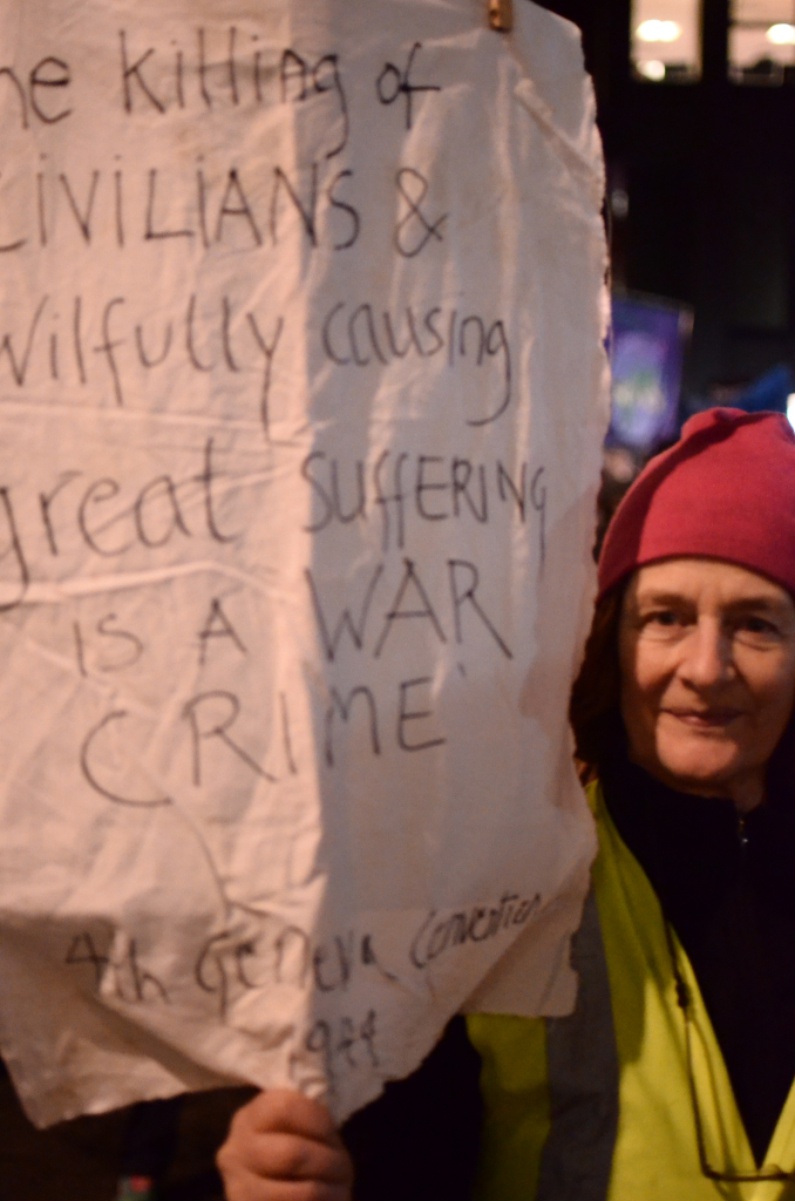 he killing of
CIVILIANS &
Wilfully causing
great SUFFERING
IS A WAR
CRIME'
4th Geneva Convention